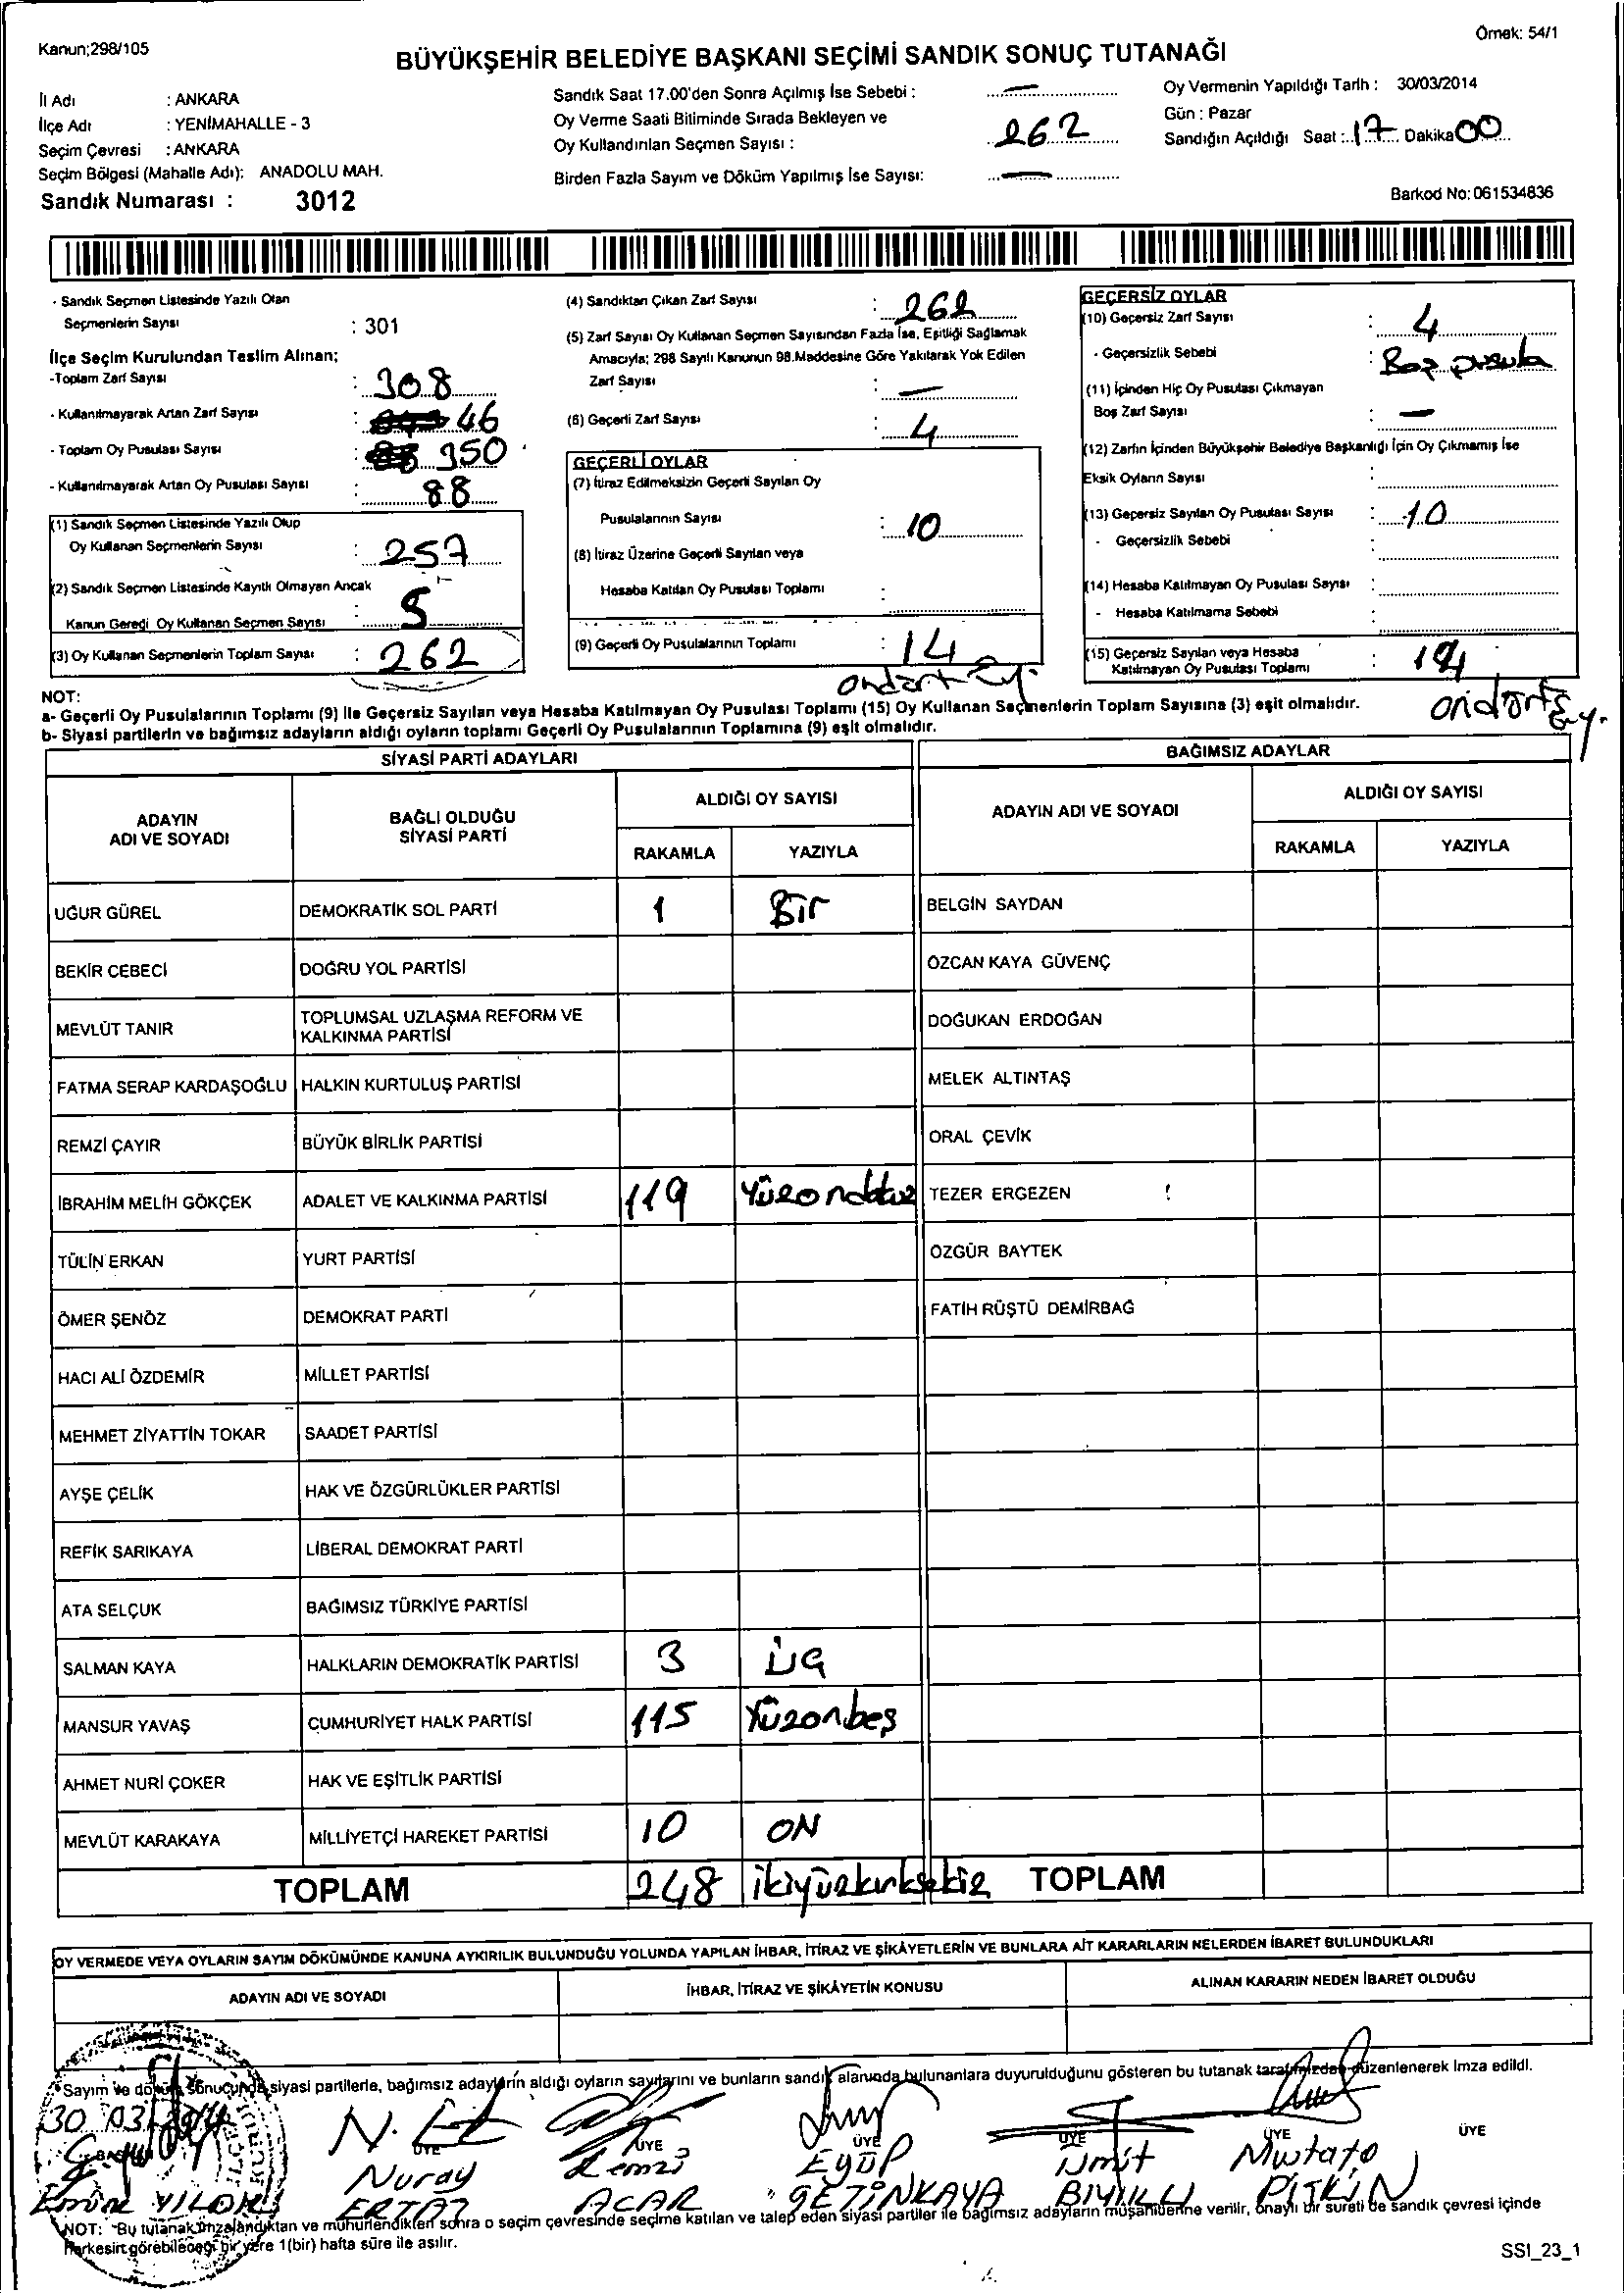 Kanun;298/105
Örnek: 54/1
BÜYÜKŞEHİR BELEDİYE BAŞKANI SEÇİMİ SANDIK SONUÇ TUTANAĞI
İl Adı : ANKARA
İlçe Adı : YENİMAHALLE - 3
Seçim Çevresi : ANKARA
Seçim Bölgesi (Mahalle Adı): ANADOLU MAH.
Sandık Numarası : 3012
Sandık Saat 17.00'den Sonra Açılmış İse Sebebi : —
Oy Verme Saati Bitiminde Sırada Bekleyen ve
Oy Kullandırılan Seçmen Sayısı : 262
Birden Fazla Sayım ve Döküm Yapılmış İse Sayısı: —
Oy Vermenin Yapıldığı Tarih : 30/03/2014
Gün : Pazar
Sandığın Açıldığı Saat : 17 Dakika 00
Barkod No: 061534836
- Sandık Seçmen Listesinde Yazılı Olan
Seçmenlerin Sayısı : 301
İlçe Seçim Kurulundan Teslim Alınan;
-Toplam Zarf Sayısı : 308
- Kullanılmayarak Artan Zarf Sayısı : 46
- Toplam Oy Pusulası Sayısı : 350
- Kullanılmayarak Artan Oy Pusulası Sayısı : 88
(1) Sandık Seçmen Listesinde Yazılı Olup
Oy Kullanan Seçmenlerin Sayısı : 257
(2) Sandık Seçmen Listesinde Kayıtlı Olmayan Ancak
Kanun Geredi Oy Kullanan Seçmen Sayısı : 5
(3) Oy Kullanan Seçmenlerin Toplam Sayısı : 262
(4) Sandıktan Çıkan Zarf Sayısı : 262
(5) Zarf Sayısı Oy Kullanan Seçmen Sayısından Fazla İse, Eşitliği Sağlamak
Amacıyla; 298 Sayılı Kanunun 98.Maddesine Göre Yakılarak Yok Edilen
Zarf Sayısı : —
(6) Geçerli Zarf Sayısı : 4
GEÇERLİ OYLAR
(7) İtiraz Edilmeksizin Geçerli Sayılan Oy
Pusulalarının Sayısı : 10
(8) İtiraz Üzerine Geçerli Sayılan veya
Hesaba Katılan Oy Pusulası Toplamı :
(9) Geçerli Oy Pusulalarının Toplamı : 14
ondört
GEÇERSİZ OYLAR
(10) Geçersiz Zarf Sayısı : 4
- Geçersizlik Sebebi : Boş pusula
(11) İçinden Hiç Oy Pusulası Çıkmayan
Boş Zarf Sayısı : —
(12) Zarfın İçinden Büyükşehir Belediye Başkanlığı İçin Oy Çıkmamış İse
Eksik Oyların Sayısı :
(13) Geçersiz Sayılan Oy Pusulası Sayısı : 10
- Geçersizlik Sebebi :
(14) Hesaba Katılmayan Oy Pusulası Sayısı :
- Hesaba Katılmama Sebebi :
(15) Geçersiz Sayılan veya Hesaba
Katılmayan Oy Pusulası Toplamı : 14
ondört
NOT:
a- Geçerli Oy Pusulalarının Toplamı (9) ile Geçersiz Sayılan veya Hesaba Katılmayan Oy Pusulası Toplamı (15) Oy Kullanan Seçmenlerin Toplam Sayısına (3) eşit olmalıdır.
b- Siyasi partilerin ve bağımsız adayların aldığı oyların toplamı Geçerli Oy Pusulalarının Toplamına (9) eşit olmalıdır.
SİYASİ PARTİ ADAYLARI BAĞIMSIZ ADAYLAR
ADAYIN ADI VE SOYADI
BAĞLI OLDUĞU SİYASİ PARTİ
ALDIĞI OY SAYISI
RAKAMLA YAZIYLA
ADAYIN ADI VE SOYADI
ALDIĞI OY SAYISI
RAKAMLA YAZIYLA
UĞUR GÜREL DEMOKRATİK SOL PARTİ 1 Bir BELGİN SAYDAN
BEKİR CEBECİ DOĞRU YOL PARTİSİ ÖZCAN KAYA GÜVENÇ
MEVLÜT TANIR TOPLUMSAL UZLAŞMA REFORM VE KALKINMA PARTİSİ DOĞUKAN ERDOĞAN
FATMA SERAP KARDAŞOĞLU HALKIN KURTULUŞ PARTİSİ MELEK ALTINTAŞ
REMZİ ÇAYIR BÜYÜK BİRLİK PARTİSİ ORAL ÇEVİK
İBRAHİM MELİH GÖKÇEK ADALET VE KALKINMA PARTİSİ 119 Yüzondokuz TEZER ERGEZEN
TÜLİN ERKAN YURT PARTİSİ ÖZGÜR BAYTEK
ÖMER ŞENÖZ DEMOKRAT PARTİ FATİH RÜŞTÜ DEMİRBAĞ
HACI ALİ ÖZDEMİR MİLLET PARTİSİ
MEHMET ZİYATTİN TOKAR SAADET PARTİSİ
AYŞE ÇELİK HAK VE ÖZGÜRLÜKLER PARTİSİ
REFİK SARIKAYA LİBERAL DEMOKRAT PARTİ
ATA SELÇUK BAĞIMSIZ TÜRKİYE PARTİSİ
SALMAN KAYA HALKLARIN DEMOKRATİK PARTİSİ 3 Üç
MANSUR YAVAŞ CUMHURİYET HALK PARTİSİ 115 Yüzonbeş
AHMET NURİ ÇOKER HAK VE EŞİTLİK PARTİSİ
MEVLÜT KARAKAYA MİLLİYETÇİ HAREKET PARTİSİ 10 ON
TOPLAM 248 ikiyüzkırksekiz TOPLAM
OY VERMEDE VEYA OYLARIN SAYIM DÖKÜMÜNDE KANUNA AYKIRILIK BULUNDUĞU YOLUNDA YAPILAN İHBAR, İTİRAZ VE ŞİKÂYETLERİN VE BUNLARA AİT KARARLARIN NELERDEN İBARET BULUNDUKLARI
ADAYIN ADI VE SOYADI İHBAR, İTİRAZ VE ŞİKÂYETİN KONUSU ALINAN KARARIN NEDEN İBARET OLDUĞU
Sayım ve döküm sonucunda siyasi partilerle, bağımsız adayların aldığı oyların sayılarını ve bunların sandık alanında bulunanlara duyurulduğunu gösteren bu tutanak tarafımızdan düzenlenerek imza edildi.
30.03.2014
ÜYE ÜYE ÜYE ÜYE ÜYE ÜYE
Nuray Remzi Eyüp Ümit Mustafa
Emine ACAR ÇETİNKAYA BIYIKLI PİTKİN
NOT: Bu tutanak imzalandıktan ve mühürlendikten sonra o seçim çevresinde seçime katılan ve talep eden siyasi partiler ile bağımsız adayların müşahitlerine verilir, onaylı bir sureti de sandık çevresi içinde
herkesin görebileceği bir yere 1(bir) hafta süre ile asılır.
SSI_23_1